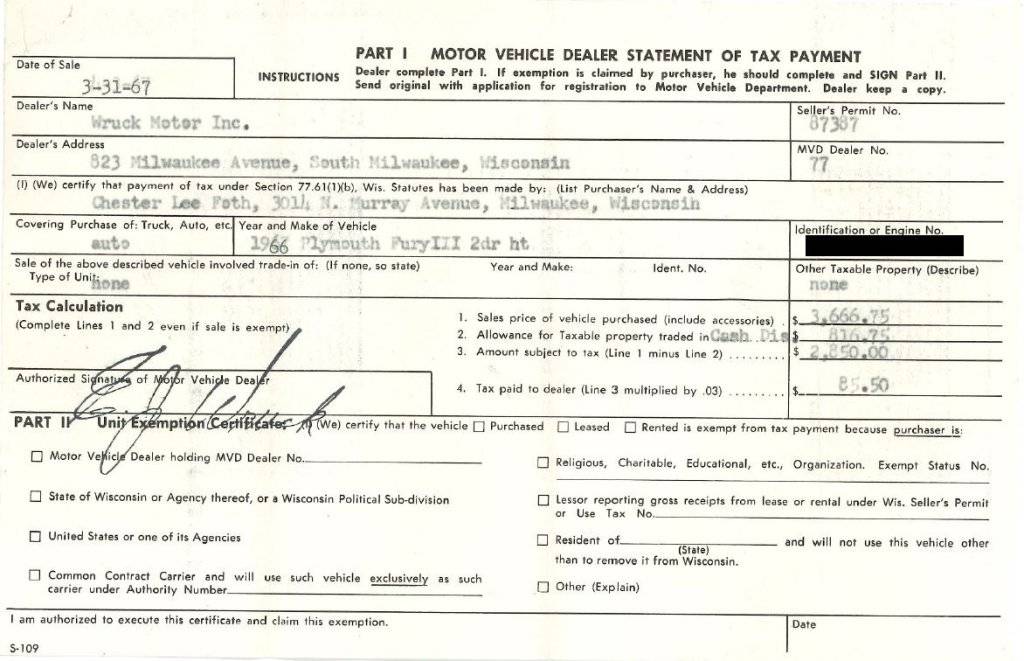 PART I MOTOR VEHICLE DEALER STATEMENT OF TAX PAYMENT
Date of Sale
3-31-67
INSTRUCTIONS
Dealer complete Part I. If exemption is claimed by purchaser, he should complete and SIGN Part II.
Send original with application for registration to Motor Vehicle Department. Dealer keep a copy.
Dealer's Name
Wruck Motor Inc.
Seller's Permit No.
87387
Dealer's Address
823 Milwaukee Avenue, South Milwaukee, Wisconsin
MVD Dealer No.
77
(I) (We) certify that payment of tax under Section 77.61(1)(b), Wis. Statutes has been made by: (List Purchaser's Name & Address)
Chester Lee Foth, 3014 N. Murray Avenue, Milwaukee, Wisconsin
Covering Purchase of: Truck, Auto, etc.
auto
Year and Make of Vehicle
1966 Plymouth FuryIII 2dr ht
Identification or Engine No.
Sale of the above described vehicle involved trade-in of: (If none, so state) Year and Make: Ident. No.
Type of Unit: none
Other Taxable Property (Describe)
none
Tax Calculation
(Complete Lines 1 and 2 even if sale is exempt)
1. Sales price of vehicle purchased (include accessories) . $ 3,666.75
2. Allowance for Taxable property traded in Cash Dis $ 816.75
3. Amount subject to tax (Line 1 minus Line 2) ......... $ 2,850.00
4. Tax paid to dealer (Line 3 multiplied by .03) ......... $ 85.50
Authorized Signature of Motor Vehicle Dealer
E J Wruck
PART II Unit Exemption Certificate: (I) (We) certify that the vehicle ☐ Purchased ☐ Leased ☐ Rented is exempt from tax payment because purchaser is:
☐ Motor Vehicle Dealer holding MVD Dealer No.
☐ State of Wisconsin or Agency thereof, or a Wisconsin Political Sub-division
☐ United States or one of its Agencies
☐ Common Contract Carrier and will use such vehicle exclusively as such
carrier under Authority Number
☐ Religious, Charitable, Educational, etc., Organization. Exempt Status No.
☐ Lessor reporting gross receipts from lease or rental under Wis. Seller's Permit
or Use Tax No.
☐ Resident of and will not use this vehicle other
(State)
than to remove it from Wisconsin.
☐ Other (Explain)
I am authorized to execute this certificate and claim this exemption.
Date
S-109